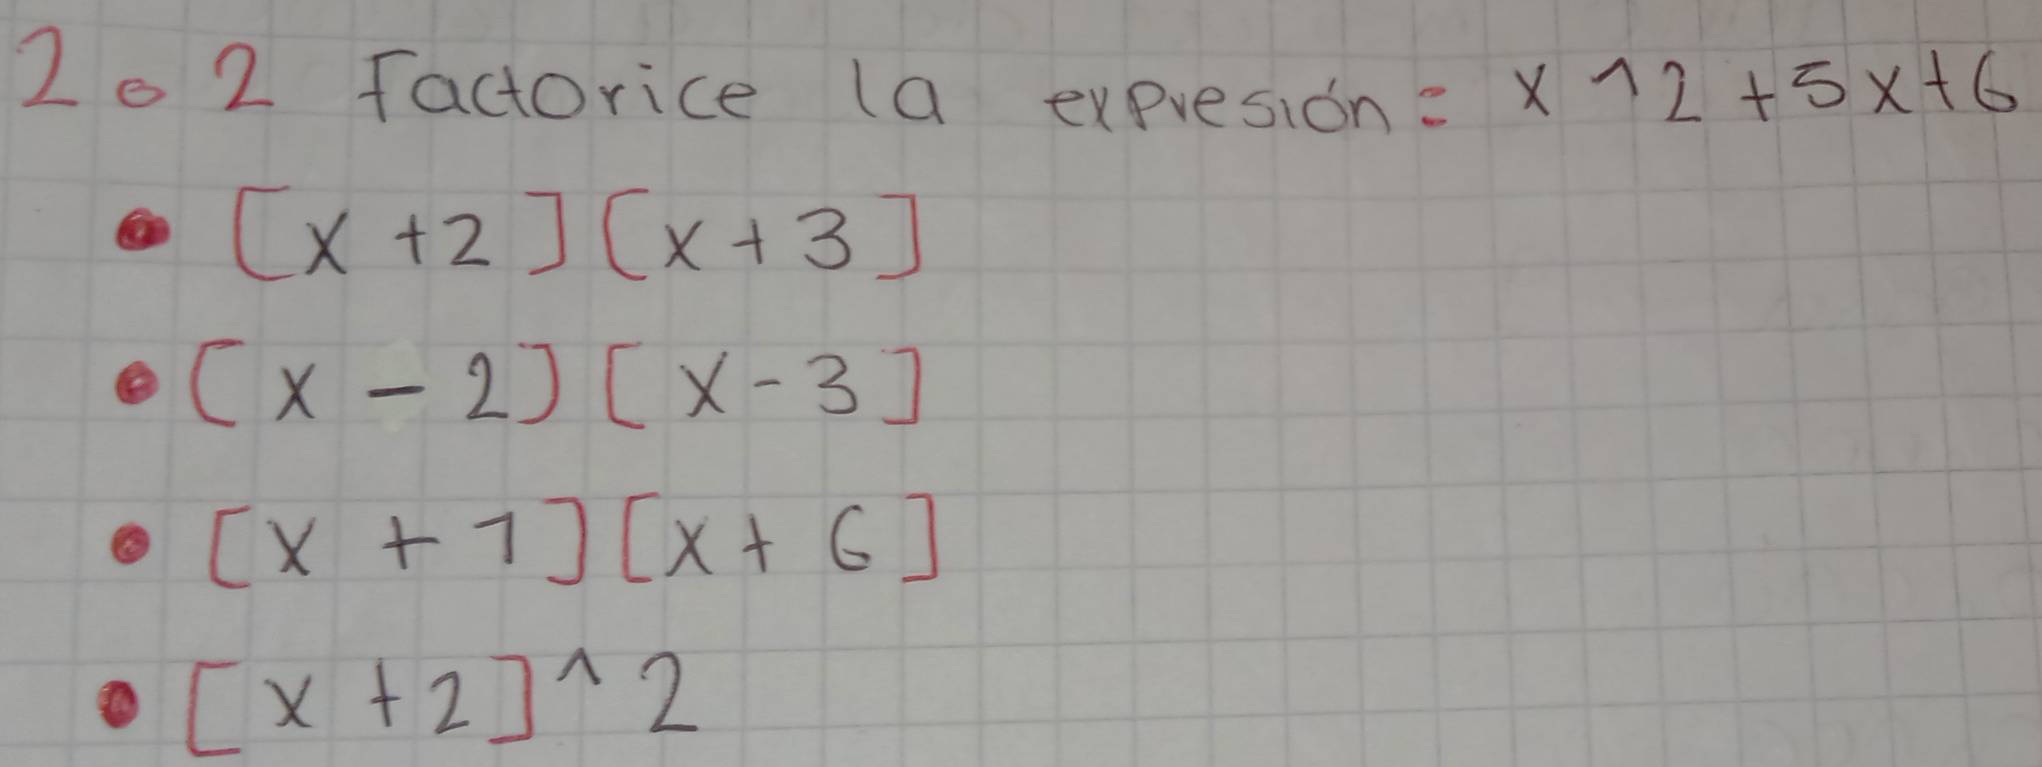 2. 2 Factorice la expresión: x^2+5x+6
• [x+2][x+3]
• [x-2][x-3]
• [x+1][x+6]
• [x+2]^2